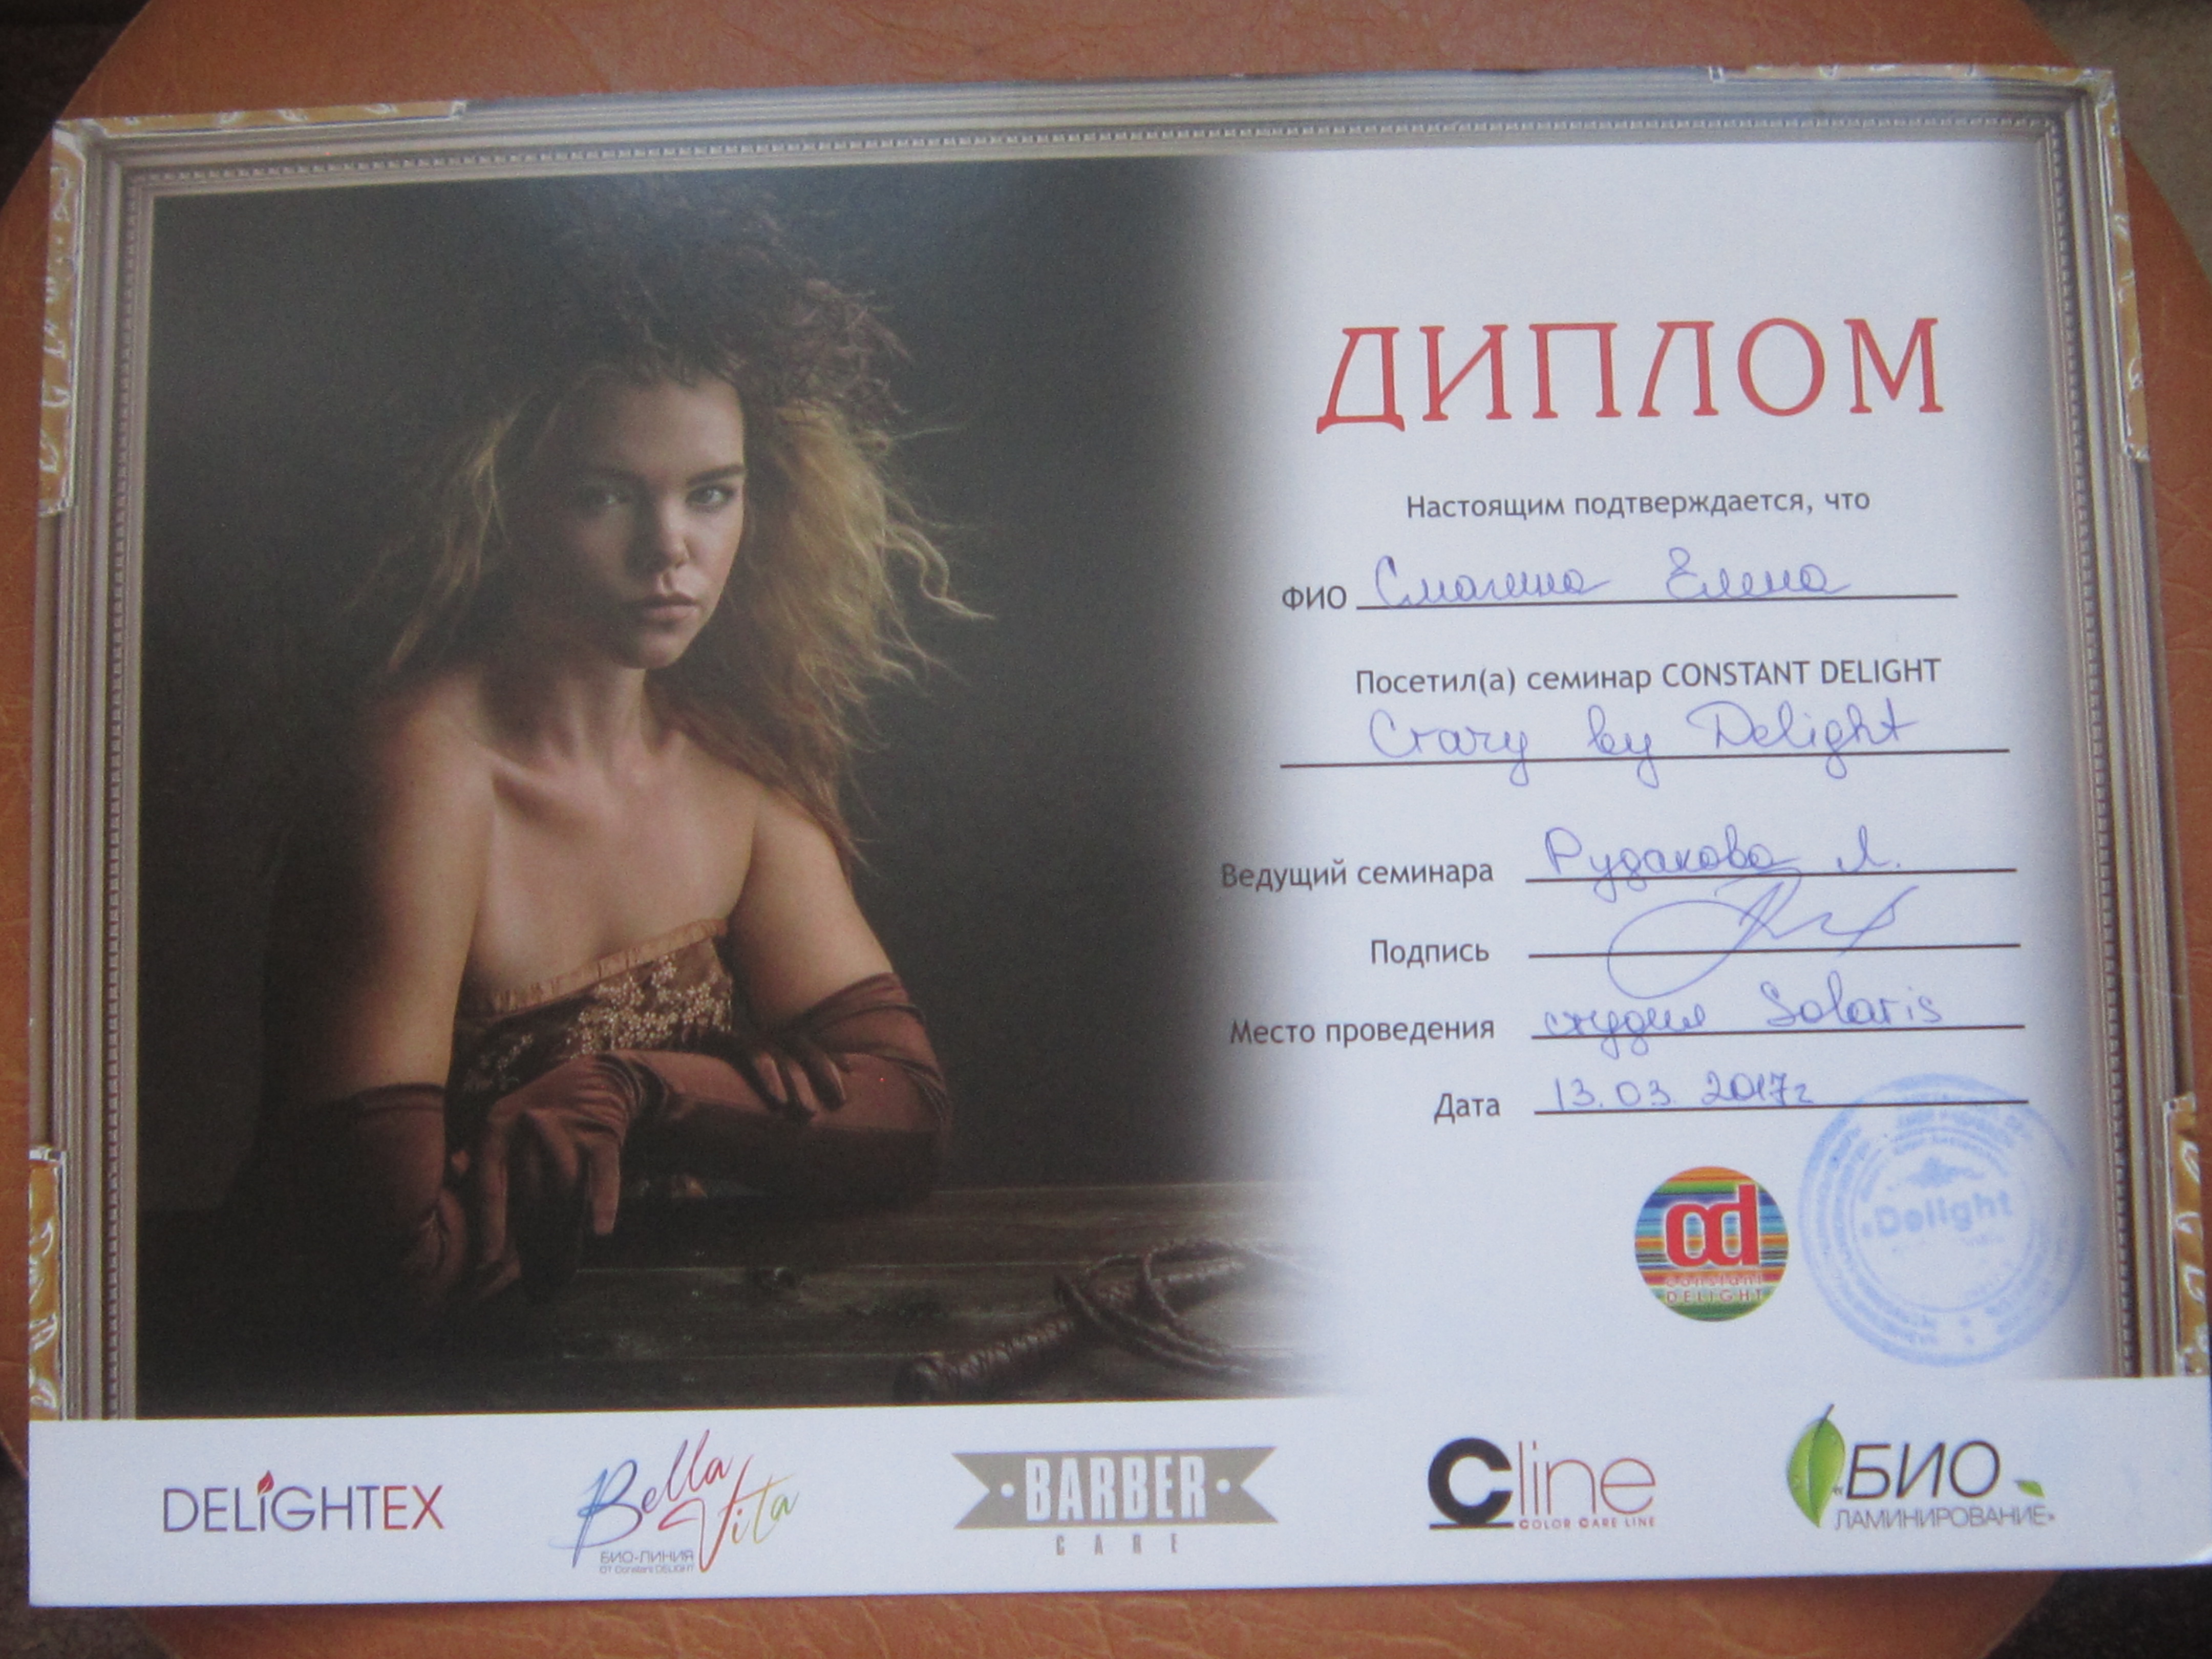 ДИПЛОМ
Настоящим подтверждается, что
ФИО Смагина Елена
Посетил(а) семинар CONSTANT DELIGHT
Crazy by Delight
Ведущий семинара Рудакова Л.
Подпись
Место проведения студия Solaris
Дата 13.03.2017г
cd
constant
DELIGHT
«Delight
DELIGHTEX
Bella Vita
БИО-ЛИНИЯ
ОТ Constant DELIGHT
BARBER
CARE
Cline
COLOR CARE LINE
«БИО
ЛАМИНИРОВАНИЕ»